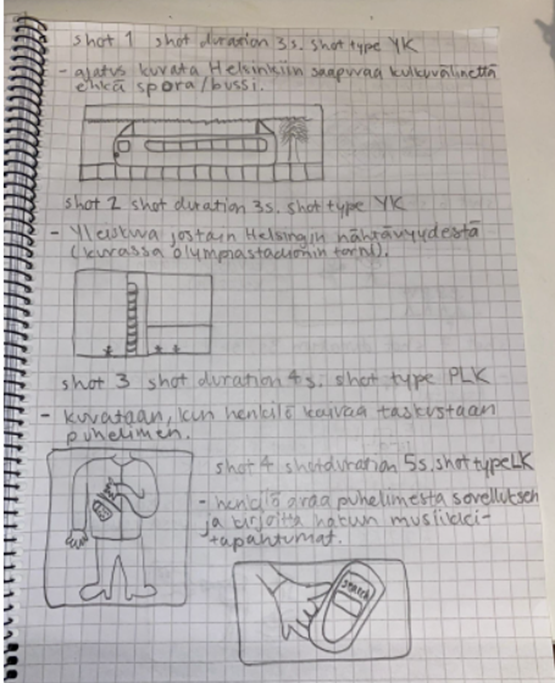 shot 1 shot duration 3s. shot type YK
- ajatus kuvata Helsinkiin saapuvaa kulkuvälinettä
ehkä spora/bussi.
shot 2 shot duration 3s. shot type YK
- Yleiskuva jostain Helsingin nähtävyydestä
(kuvassa olympiastadionin torni).
shot 3 shot duration 4s. shot type PLK
- kuvataan, kun henkilö kaivaa taskustaan
puhelimen.
shot 4 shot duration 5s. shot type LK
- henkilö avaa puhelimesta sovelluksen
ja kirjoitta hakuun musiikki-
tapahtumat.
search